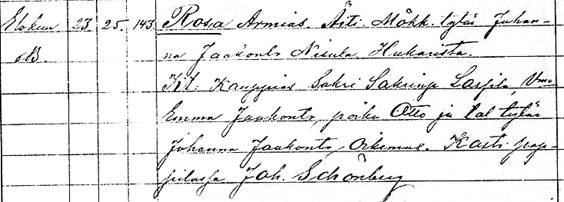 Elokuu 23. 25. 143. Rosa Armias. Äiti: Mökk. tytär Johan-
na Jaakont. Nisula Hukarista.
Kit. Kauppias Sakri Sakrinp. Laszila, Vmo
Emma Jaakont., poika Otto ja tal. tytär
Johanna Jaakont. Oikemus. Kasti pap-
pilassa Joh. Schönberg